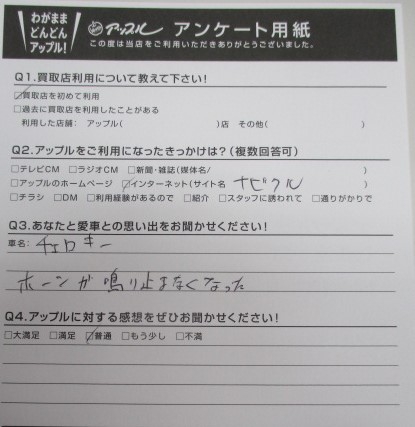 わがまま
どんどん
アップル!
アップル アンケート用紙
この度は当店をご利用いただきありがとうございました。
Q1.買取店利用について教えて下さい!
☑買取店を初めて利用
□過去に買取店を利用したことがある
利用した店舗: アップル( )店 その他( )
Q2.アップルをご利用になったきっかけは?(複数回答可)
□テレビCM □ラジオCM □新聞・雑誌(媒体名/ )
□アップルのホームページ ☑インターネット(サイト名 ナビクル )
□チラシ □DM □利用経験があるので □紹介 □スタッフに誘われて □通りがかりで
Q3.あなたと愛車との思い出をお聞かせください!
車名: チェロキー
ホーンが鳴り止まなくなった
Q4.アップルに対する感想をぜひお聞かせください!
□大満足 □満足 ☑普通 □もう少し □不満